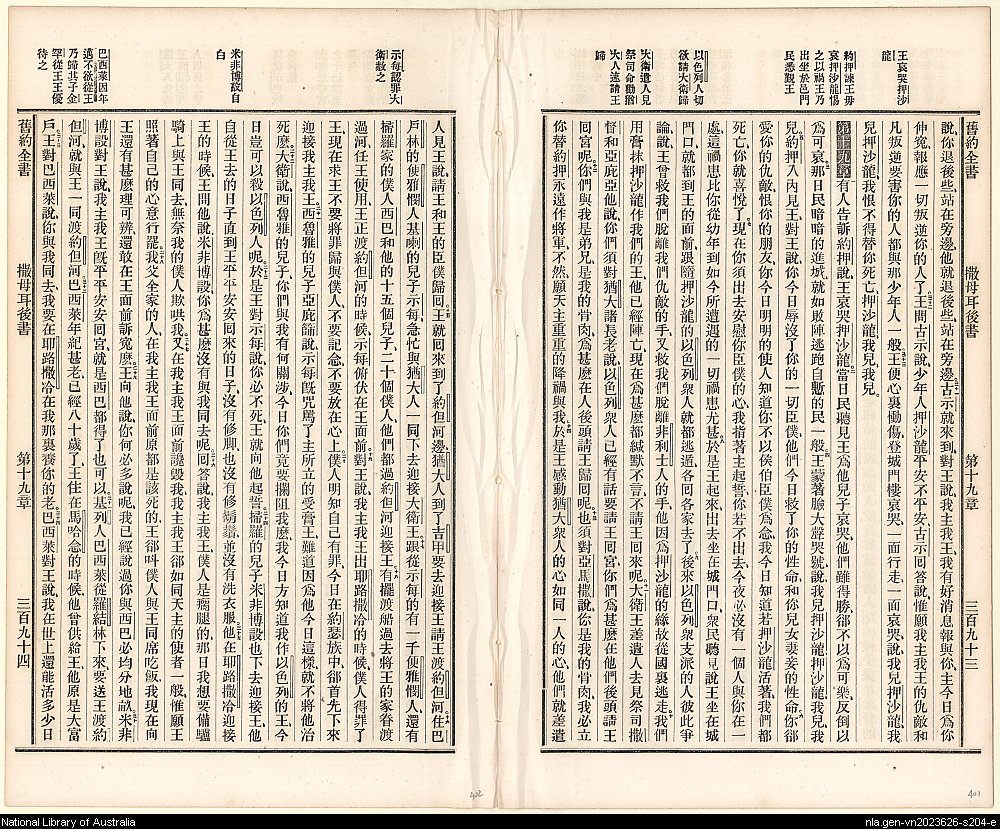 王哀哭押沙
龍
約押諫王毋
哀押沙龍傷
之以禍王乃
出坐於邑門
民悉覲王
以色列人切
欲請大衛歸
大衛遣人見
祭司命勸猶
大人速請王
歸
舊約全書 撒母耳後書 第十九章 三百九十三
說、你退後些、站在旁邊、他就退後些、站在旁邊、古示就來到、對王說、我主我王、我有好消息報與你、主今日為你
伸寃報應一切叛逆你的人了、王問古示說、少年人押沙龍平安不平安、古示回答說、惟願我主我王的仇敵、和
凡叛逆要害你的人、都與那少年人一般、王便心裏慟傷、登城門樓哀哭、一面行走、一面哀哭、說、我兒押沙龍、我
兒押沙龍、我恨不得替你死亡、押沙龍、我兒、我兒。
第十九章 有人告訴約押說、王哀哭押沙龍、當日民聽見王為他兒子哀哭、他們雖得勝、卻不以為可樂、反倒以
為可哀、那日民暗暗的進城、就如敗陣逃跑自慙的民一般、王蒙著臉大聲哭號說、我兒押沙龍、押沙龍我兒、我
兒、約押入內見王、對王說、你今日羞辱沒了你的一切臣僕、他們今日救了你的性命、和你兒女妻妾的性命、你卻
愛你的仇敵、恨你的朋友、你今日明明的使人知道你不以侯伯臣僕為念、我今日知道若押沙龍活著、我們都
死亡、你就喜悅了、現在你須出去、安慰你臣僕的心、我指著主起誓、你若不出去、今夜必沒有一個人與你在一
處、這禍患比你從幼年到如今所遭遇的一切禍患尤甚、於是王起來、出去坐在城門口、眾民聽見說王坐在城
門口、就都到王的面前、跟隨押沙龍的以色列眾人、就都逃遁、各回各家去了、後來以色列眾支派的人、彼此爭
論說、王曾救我們脫離我們仇敵的手、又救我們脫離非利士人的手、他因為押沙龍的緣故、從國裏逃走、我們
用膏抹押沙龍作我們的王、他已經陣亡、現在為甚麼都緘默不言、不請王回來呢、大衛王差遣人去見祭司撒
督和亞庇亞他說、你們須對猶大諸長老說、以色列眾人已經有話、要請王回宮、你們為甚麼在人後頭請王
回宮呢、你們與我是弟兄、是我的骨肉、為甚麼在人後頭請王歸回呢、也須對亞馬撒說、你是我的骨肉、我必立
你替約押、永遠作將軍、不然、願天主重重的降禍與我、於是王感動猶大眾人的心、如同一人的心、他們就差遣
示每認罪大
衛赦之
米非博設自
白
巴西萊因年
邁不欲從王
乃歸其子金
罕從王王優
待之
人見王說、請王和王的臣僕歸回、王就回來到了約但河邊、猶大人到了吉甲、要去迎接王、請王渡約但河、住巴
戶林的便雅憫人基喇的兒子示每、急忙與猶大人一同下去迎接大衛王、跟從示每的有一千便雅憫人、還有
掃羅家的僕人西巴、和他的十五個兒子、二十個僕人、他們都過約但河迎接王、有擺渡船過去、將王的家眷渡
過河、任王使用、王正渡約但河的時候、示每俯伏在王面前、對王說、我主我王出耶路撒冷的時候、僕人得罪了
王、現在求王不要將罪歸與僕人、不要記念、不要放在心上、僕人明知自己有罪、今日在約瑟族中、卻首先下來
迎接我主我王、西魯雅的兒子亞庇篩說、示每既咒罵了主所立的受膏王、難道因為他今日這樣、就不將他治
死麼、大衛說、西魯雅的兒子、你們與我有何關涉、今日你們竟要攔阻我麼、我今日方知道我作以色列的王、今
日豈可以殺以色列人呢、於是王對示每說、你必不死、王就向他起誓、掃羅的兒子米非博設也下去迎接王、他
自從王去的日子、直到王平平安安回來的日子、沒有修腳、也沒有修鬍鬚、並沒有洗衣服、他在耶路撒冷迎接
王的時候、王問他說、米非博設你為甚麼沒有與我同去呢、回答說、我主我王、僕人是瘸腿的、那日我想要備驢
騎上與王同去、無奈我的僕人欺哄我、又在我主我王面前讒毀我、我主我王卻如同天主的使者一般、惟願王
照著自己的心意行罷、我父全家的人、在我主我王面前原都是該死的、王卻叫僕人與王同席吃飯、我現在向
王還有甚麼理可辨、還敢在王面前訴寃麼、王向他說、你何必多說呢、我已經說過、你與西巴必均分地畝、米非
博設對王說、我主我王既平平安安回宮、就是西巴都得了也可以、基列人巴西萊從羅結林下來、要送王渡約
但河、就與王一同渡約但河、巴西萊年紀甚老、已經八十歲了、王住在馬哈念的時候、他曾供給王、他原是大富
戶、王對巴西萊說、你與我同去、我要在耶路撒冷在我那裏養你的老、巴西萊對王說、我在世上還能活多少日
舊約全書 撒母耳後書 第十九章 三百九十四
402
401
National Library of Australia
nla.gen-vn2023626-s204-e